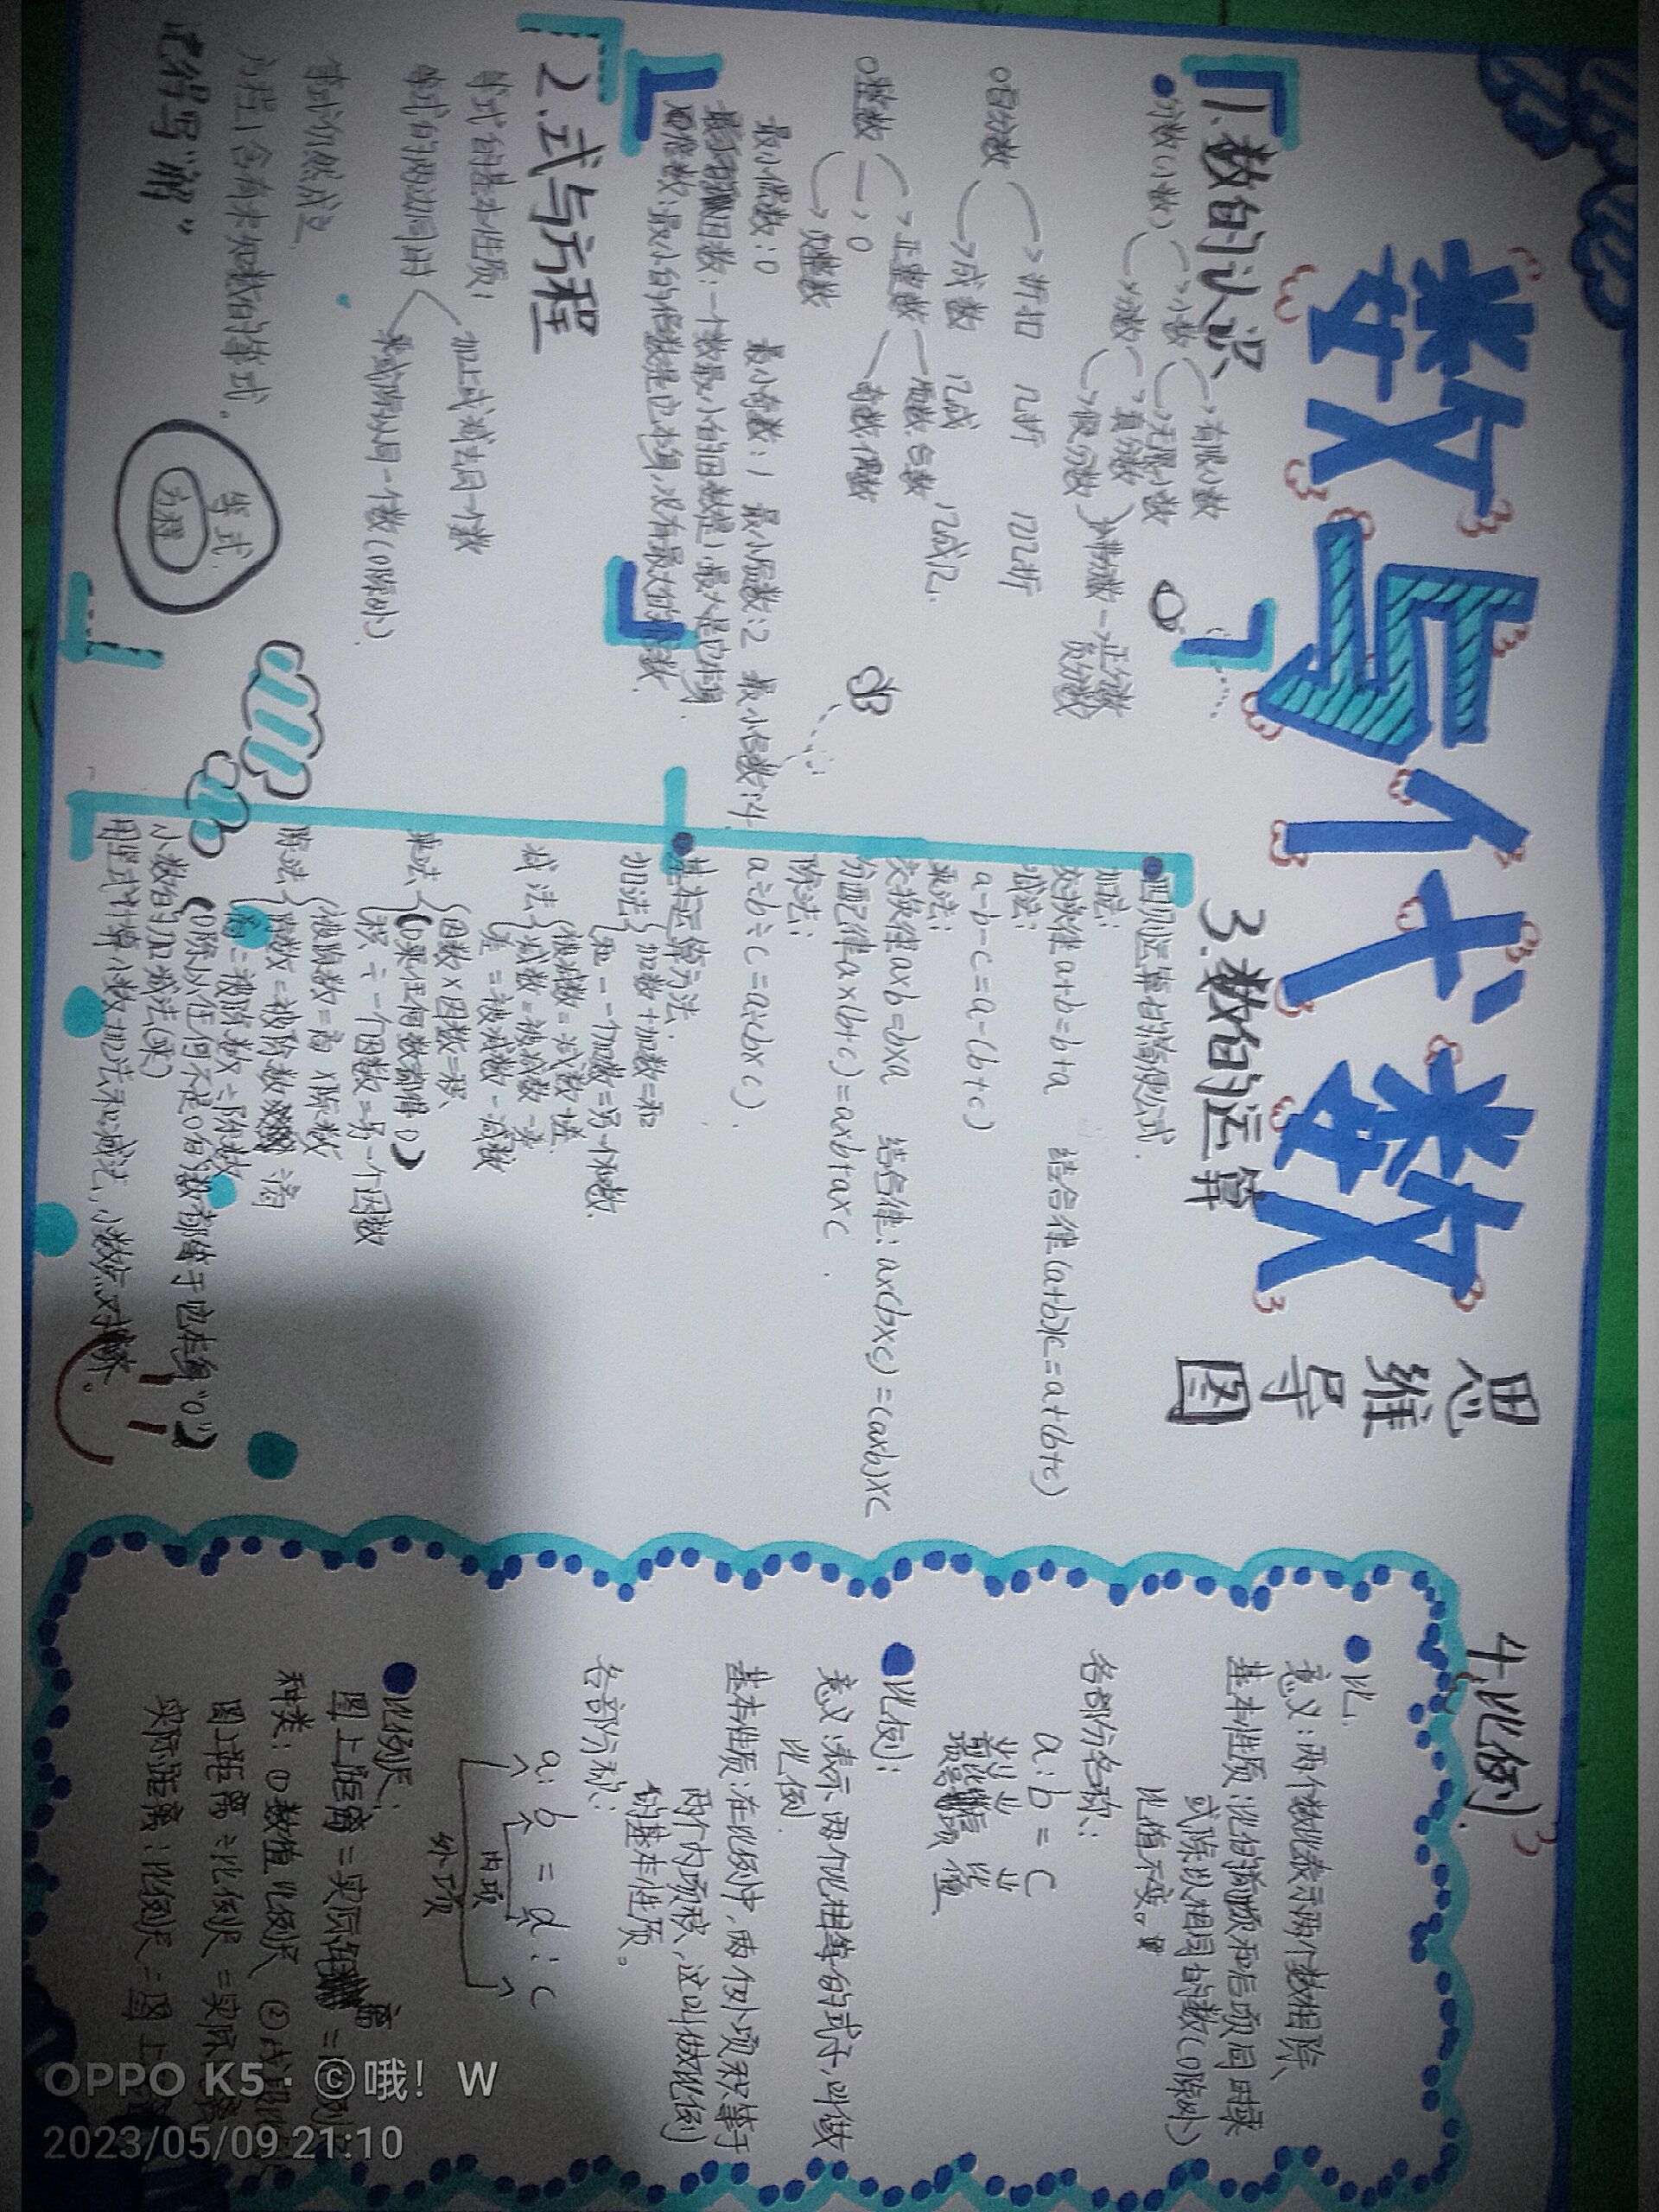 数与代数
思维导图
1.数的认识
分数(小数)
小数
有限小数
无限小数
分数
真分数
假分数
负分数
百分数
折扣 几折 几几折
成数 几成 几成几.
整数
正整数
质数 合数
奇数 偶数
0
负整数
最小偶数:0 最小奇数:1 最小质数:2 最小合数:4
因数:一个数最小的因数是1,最大是它本身.
倍数:最小的倍数是它本身,没有最大的倍数.
2.式与方程
等式的基本性质:
等式的两边同时
加上或减去同一个数
乘或除以同一个数(0除外)
等式仍然成立
方程:含有未知数的等式。
记得写“解”
等式
方程
3.数的运算
四则运算的简便公式.
加法:
交换律 a+b=b+a 结合律 (a+b)+c=a+(b+c)
减法:
a-b-c=a-(b+c)
乘法:
交换律 a×b=b×a 结合律: a×(b×c)=(a×b)×c
分配律 a×(b+c)=a×b+a×c
除法:
a÷b÷c=a÷(b×c)
基本运算方法.
加法
加数+加数=和
和-一个加数=另一个加数.
减法
被减数=减数+差
减数=被减数-差
差=被减数-减数
乘法
因数×因数=积
(0乘任何数都得0)
积÷一个因数=另一个因数
除法
被除数=商×除数
除数=被除数÷商
商=被除数÷除数
(0除以任何不是0的数都等于它本身“0”)
小数的加减法(乘)
用竖式计算小数加法和减法,小数点对齐。
4.比例
比.
意义:两个数比表示两个数相除、
基本性质:比的前项和后项同时乘
或除以相同的数(0除外)
比值不变。
各部分名称:
a:b=c
前项 比号 后项 比值
比例:
意义:表示两个比相等的式子,叫做
比例.
基本性质:在比例中,两个外项积等于
两个内项积,这叫做比例
的基本性质。
各部分名称:
a:b=d:c
内项
外项
比例尺:
图上距离=实际距离=比例
种类:①数值比例尺 ②线段比
图上距离÷比例尺=实际
实际距离:比例尺=图上
OPPO K5·©哦!W
2023/05/09 21:10